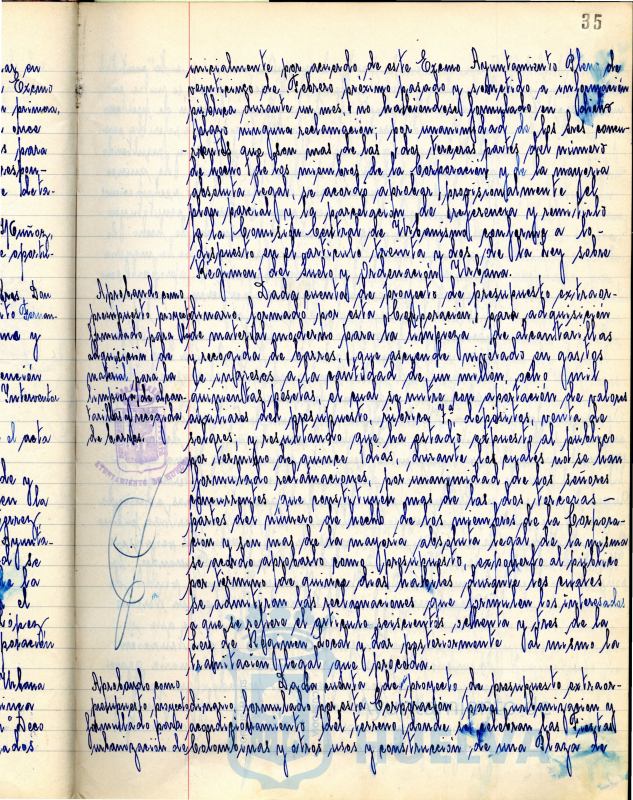 35
inicialmente por acuerdo de este Excmo Ayuntamiento Pleno de
veinticinco de Febrero próximo pasado y sometido a información
pública durante un mes, no habiéndose formulado en dicho
plazo ninguna reclamación; por unanimidad de los tres concu-
rrentes que son mas de las dos terceras partes del número
de hecho de los miembros de la Corporación y de la mayoria
absoluta legal, se acordó aprobar provisionalmente el
plan parcial y la parcelación de referencia y remitirlo
a la Comisión Central de Urbanismo conforme a lo
dispuesto en el articulo treinta y dos de la Ley sobre
Regimen del Suelo y Ordenación Urbana.
Aprobando como
presupuesto proyec
formulado por la
adquisición de
material para la
limpieza de alcan-
tarillas y recogida
de barros.
Dada cuenta de proyecto de presupuesto extraor-
dinario, formado por esta Corporación, para adquisición
de material moderno para la limpieza de alcantarillas
y recogida de barros, que asciende nivelado en gastos
e ingresos a la cantidad de un millón, ocho mil
quinientas pesetas, el cual se nutre con aportación de valores
auxiliares del presupuesto, rúbrica 7ª depósitos, venta de
solares; y resultando que ha estado expuesto al público
por término de quince dias, durante los cuales no se han
formulado reclamaciones, por unanimidad de los señores
concurrentes que constituyen mas de las dos terceras
partes del número de hecho de los miembros de la Corpora-
ción y son mas de la mayoria absoluta legal de la misma
se acordó aprobarlo como presupuesto, exponerlo al público
por término de quince dias hábiles durante los cuales
se admitiran las reclamaciones que formulen los interesados
a que se refiere el articulo seiscientos ochenta y tres de la
Ley de Régimen Local y dar posteriormente al mismo la
tramitación legal que proceda.
Aprobando como
presupuesto proyec
formulado para
urbanización de
Dada cuenta de proyecto de presupuesto extraor-
dinario formulado por esta Corporación para urbanizacion y
acondicionamiento del terreno donde se celebran las Fiestas
Colombinas y otros usos y construcción de una Plaza de